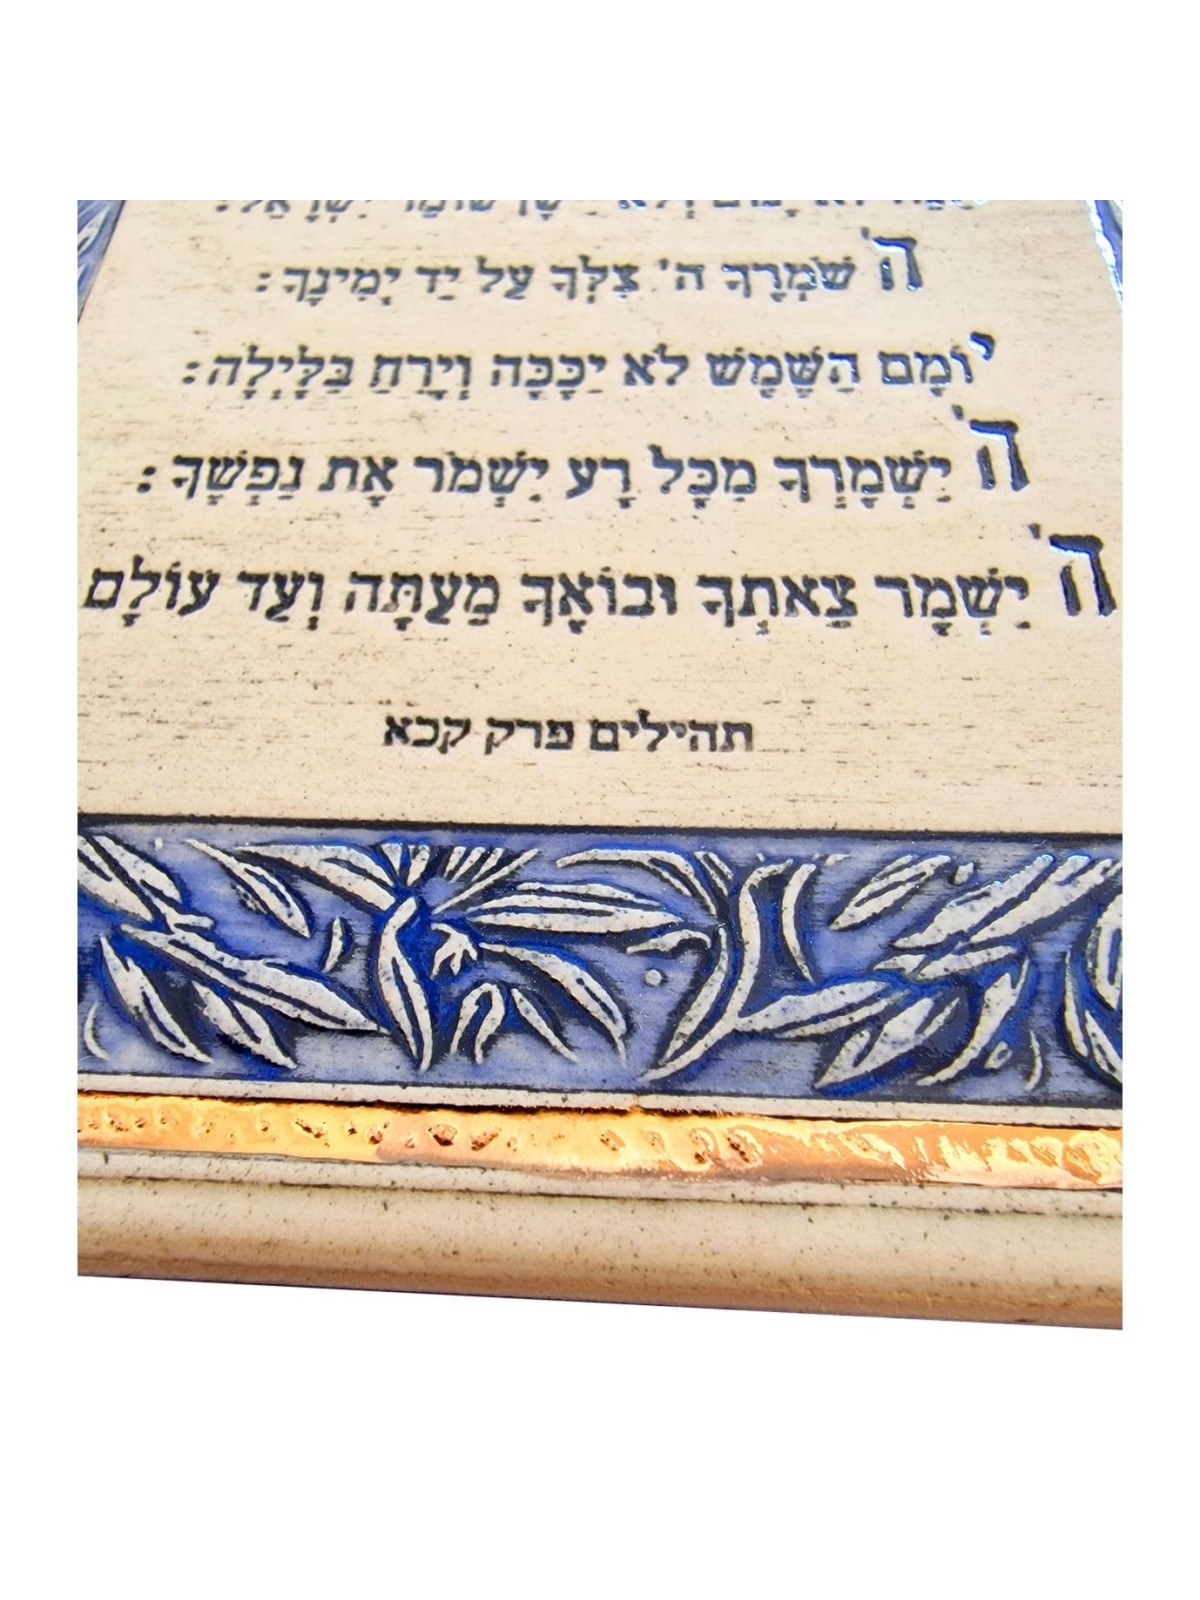 ולא יישן שומר ישראל:
ה' שֹׁמְרֶךָ ה' צִלְּךָ עַל יַד יְמִינֶךָ:
יוֹמָם הַשֶּׁמֶשׁ לֹא יַכֶּכָּה וְיָרֵחַ בַּלָּיְלָה:
ה' יִשְׁמָרְךָ מִכָּל רָע יִשְׁמֹר אֶת נַפְשֶׁךָ:
ה' יִשְׁמָר צֵאתְךָ וּבוֹאֶךָ מֵעַתָּה וְעַד עוֹלָם
תהילים פרק קכא